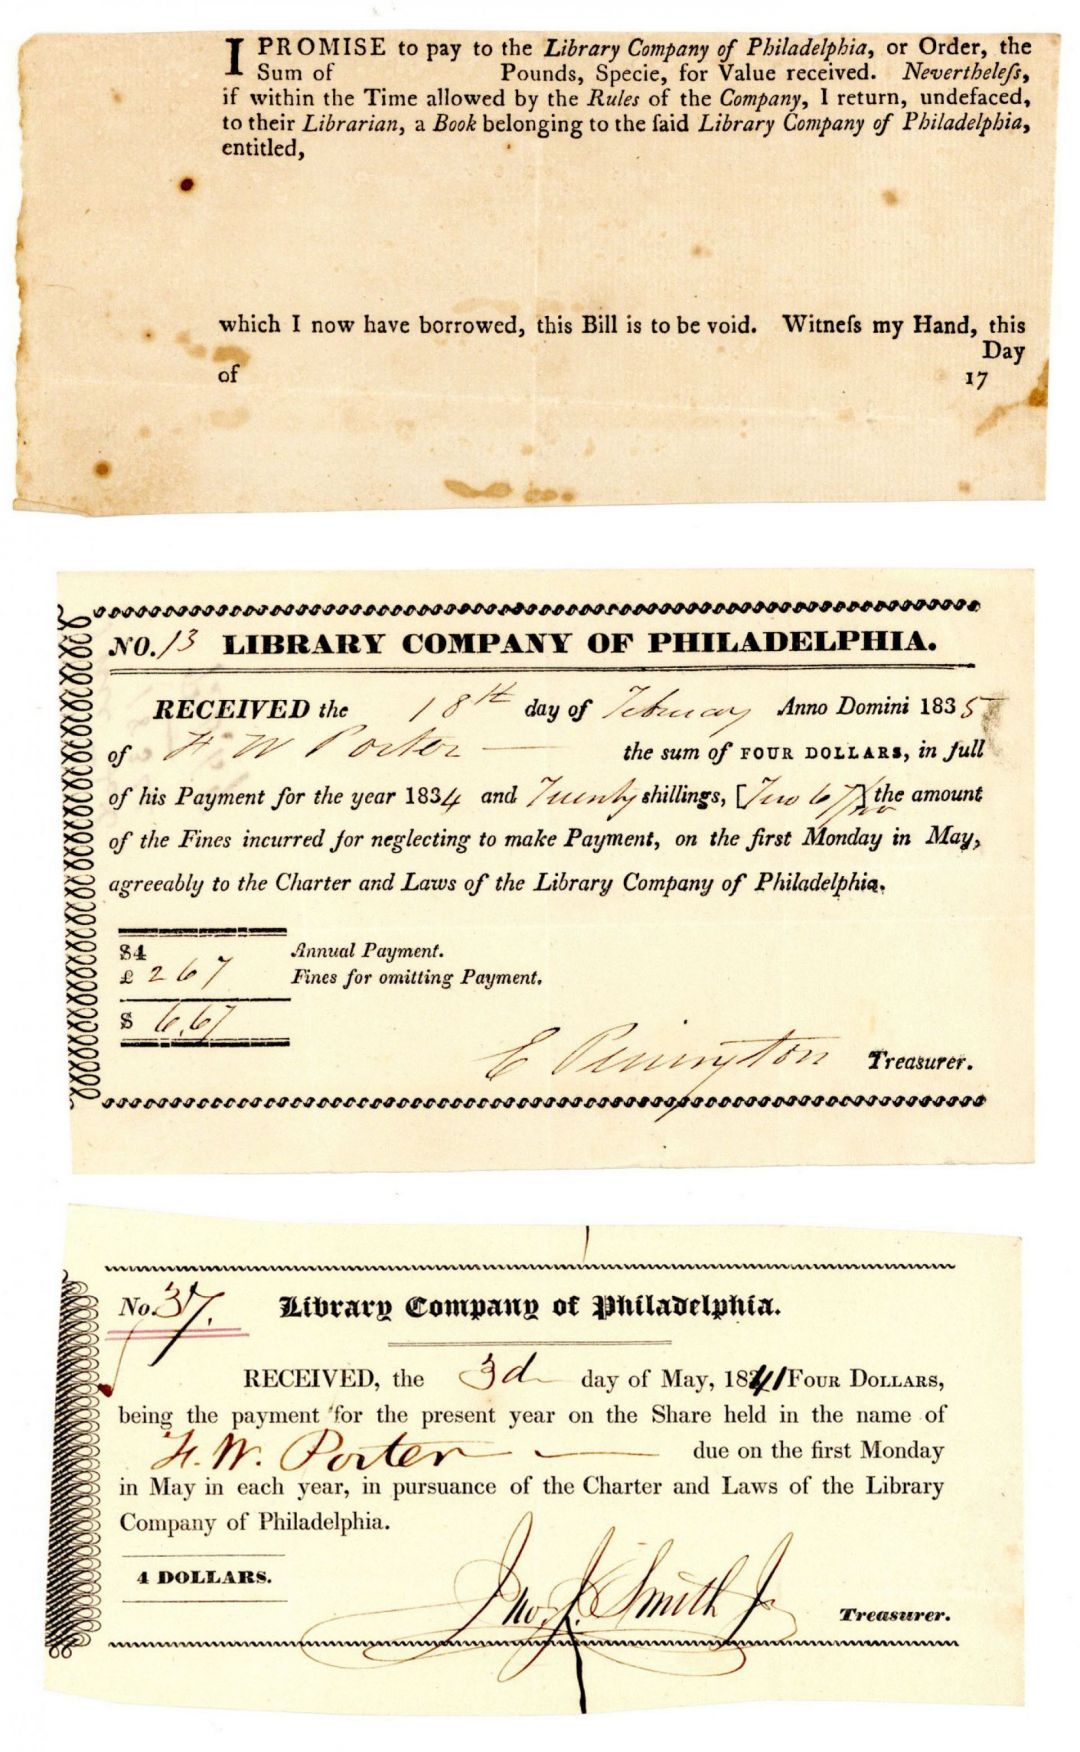 I PROMISE to pay to the Library Company of Philadelphia, or Order, the
Sum of Pounds, Specie, for Value received. Nevertheleſs,
if within the Time allowed by the Rules of the Company, I return, undefaced,
to their Librarian, a Book belonging to the ſaid Library Company of Philadelphia,
entitled,
which I now have borrowed, this Bill is to be void. Witneſs my Hand, this
Day
of 17
NO. 13 LIBRARY COMPANY OF PHILADELPHIA.
RECEIVED the 18th day of February Anno Domini 1835
of H W Porter the sum of FOUR DOLLARS, in full
of his Payment for the year 1834 and Twenty shillings, [Two 67/100] the amount
of the Fines incurred for neglecting to make Payment, on the first Monday in May,
agreeably to the Charter and Laws of the Library Company of Philadelphia.
$4 Annual Payment.
£ 2 67 Fines for omitting Payment.
$ 6.67
E Penington Treasurer.
No. 37. Library Company of Philadelphia.
RECEIVED, the 3d day of May, 1841 FOUR DOLLARS,
being the payment for the present year on the Share held in the name of
H. W. Porter due on the first Monday
in May in each year, in pursuance of the Charter and Laws of the Library
Company of Philadelphia.
4 DOLLARS.
Jno. J. Smith Jr Treasurer.